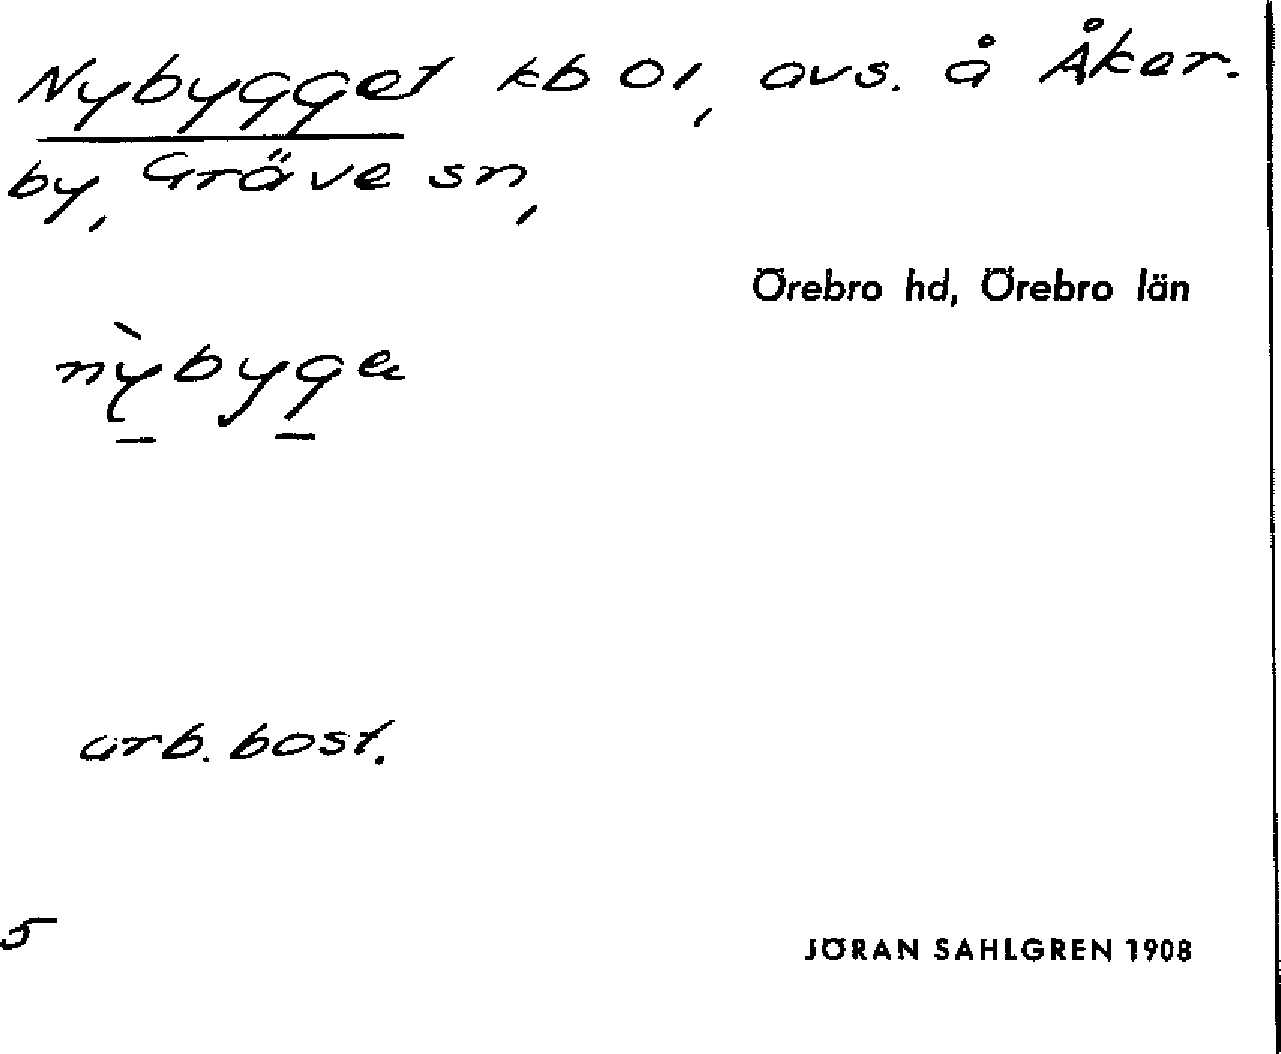 Nybygget kb 01, avs. å Åker-
by, Gräve sn,
Örebro hd, Örebro län
nỳbyga
arb. bost.
5
JÖRAN SAHLGREN 1908